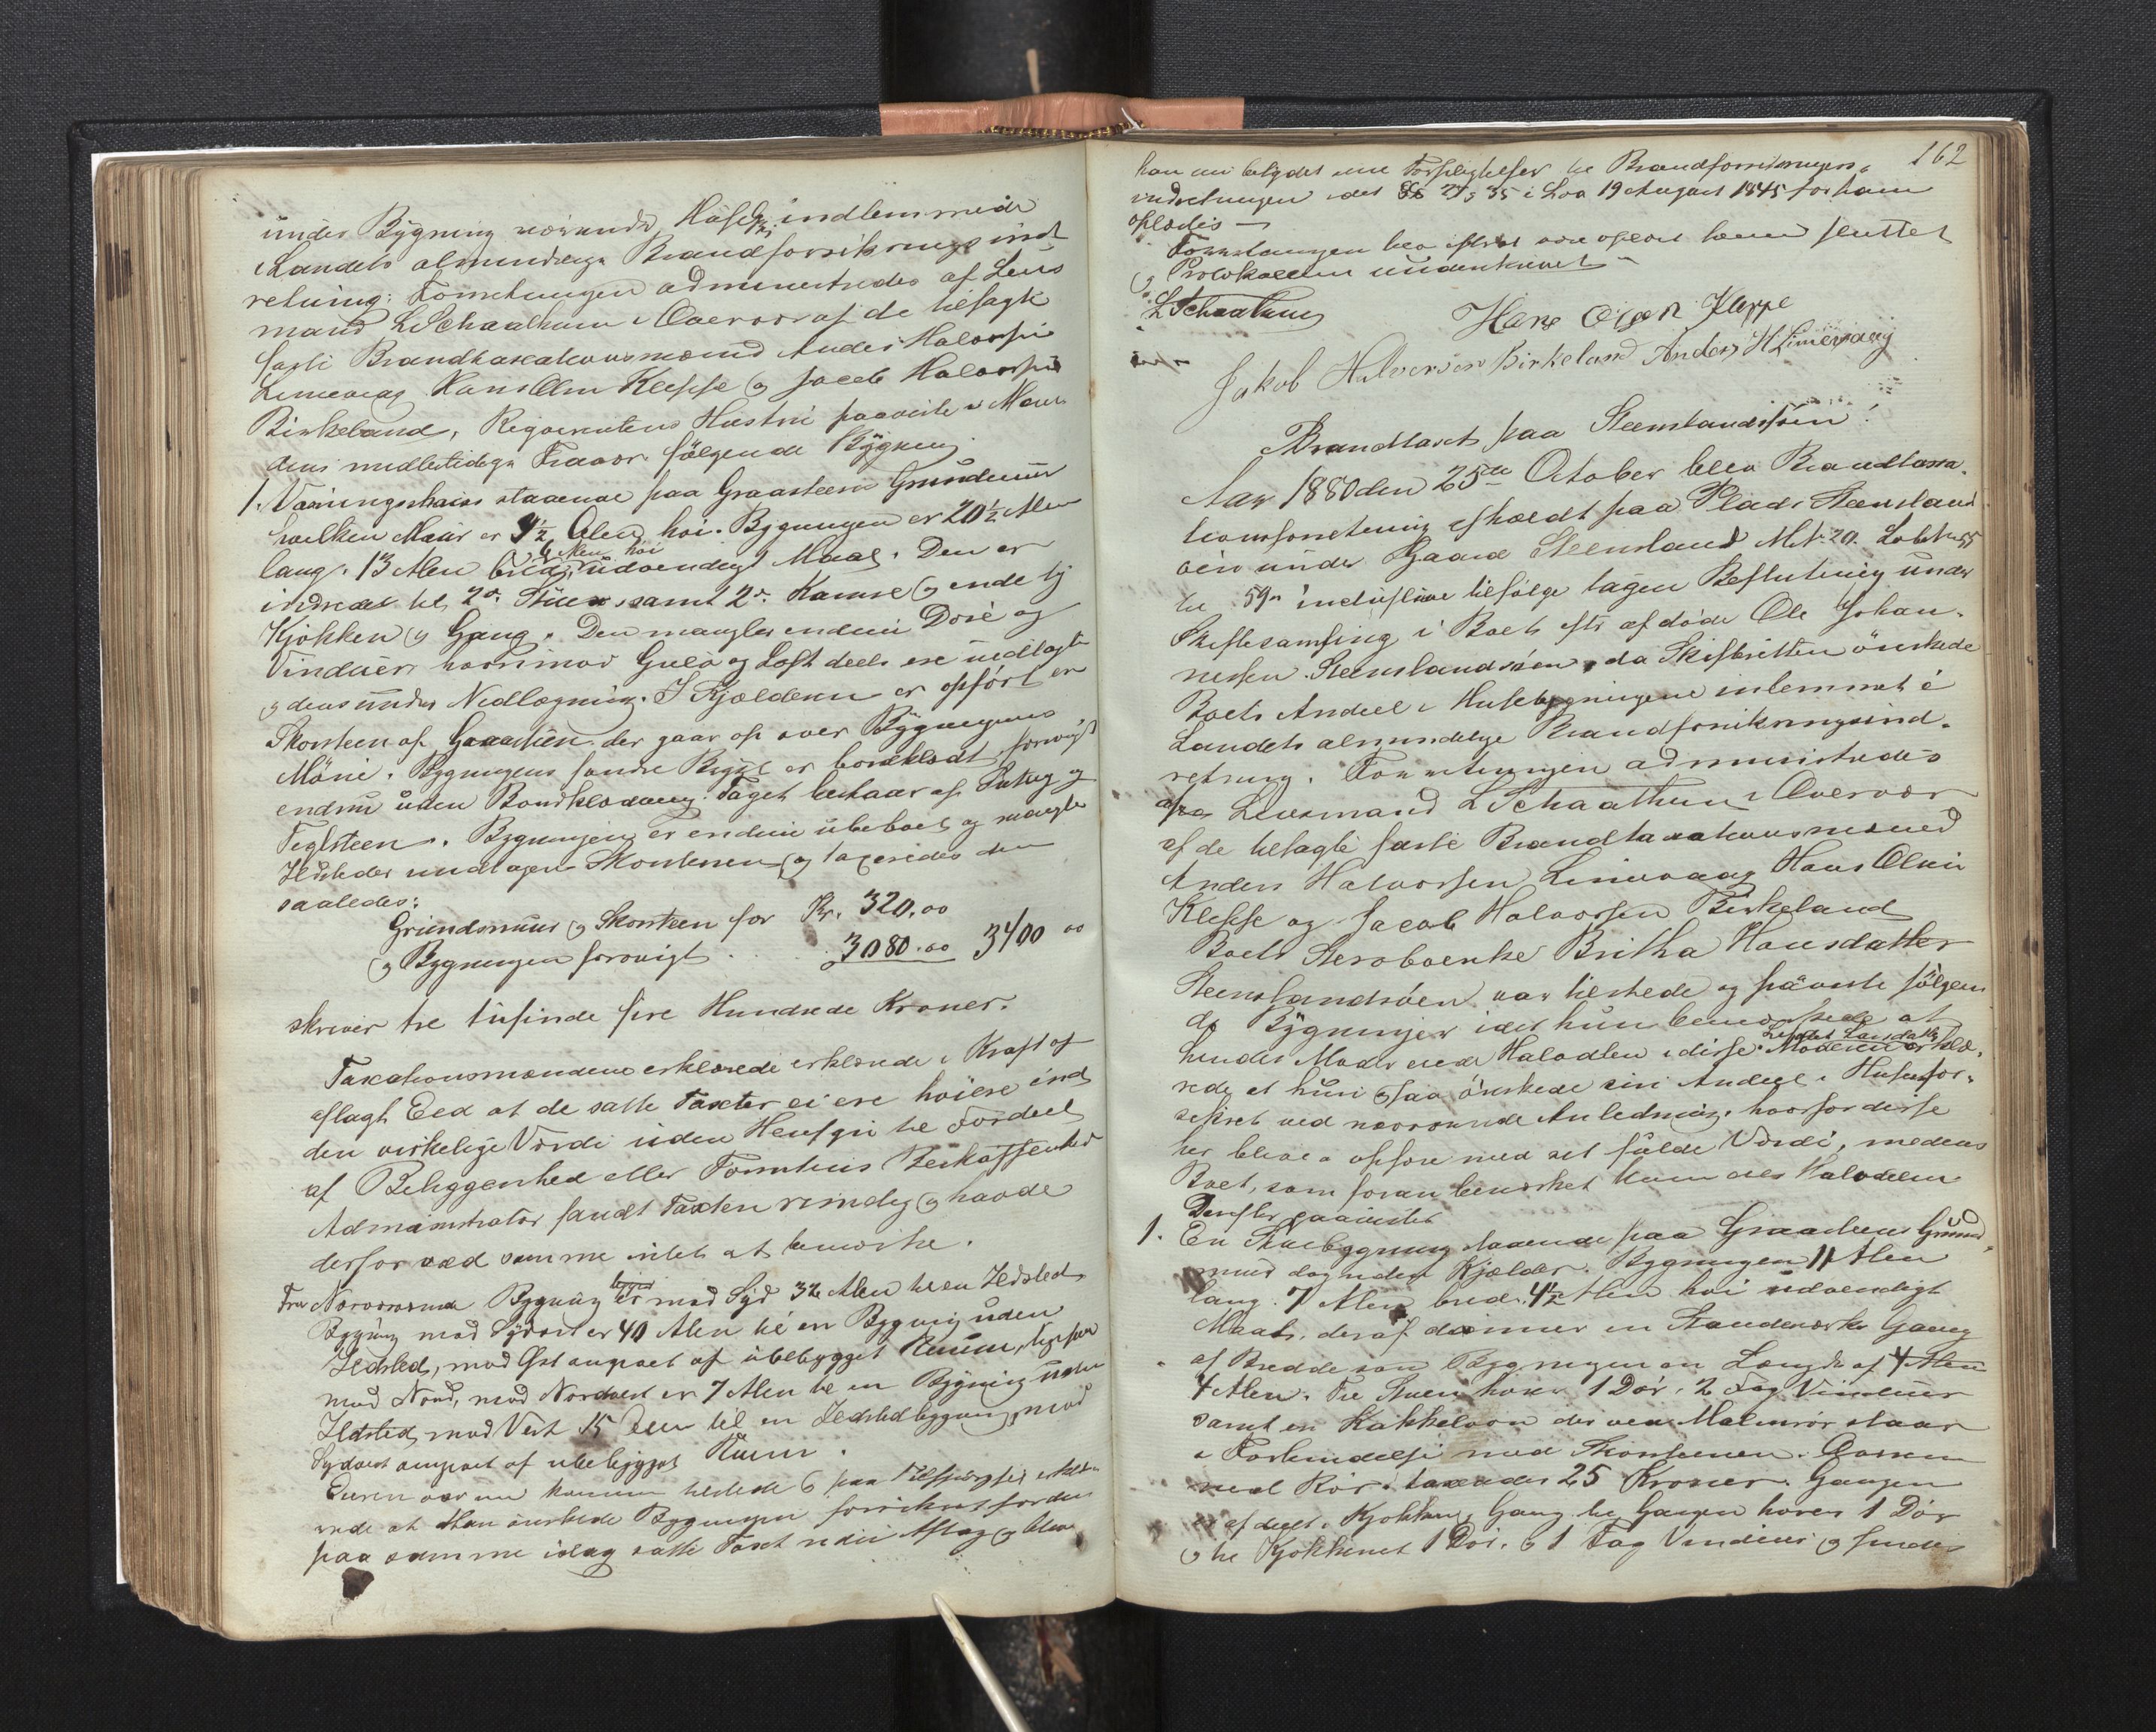 under Bygning værende Huse indlemmede
i Landets almindelige Brandforsikringsind-
retning. Forretningen administredes af Lens
mand L Schaathun i Qvervær af de tilsagte
faste Brandtaxationsmænd Anders Halvorsen
Limevaag Hans Olsen Kleppe og Jacob Halvorsen
Birkeland. Reqvirentens Hustru paaviste i Man
dens midlertidige Fravær følgende Bygning
1. Vaaningshuus staaende paa Graasteens Grundmuur
hvilken Muur er 1½ Alen høi. Bygningen er 20½ Alen
lang. 13 Alen bred, 4 Alen høi udvendigt Maal. Den er
indredet til 2de Stuer, samt 2de Kamre og ende til
Kjøkken og Gang. Den mangler endnu Døre og
Vinduer hvorimod Gulv og Loft deels ere nedlagte
og deels under Nedlægning. I Kjælderen er opført en
Skorsteen af Graasteen der gaar op over Bygningens
Møne. Bygningens søndre Bryst er bordklædt forøvrigt
endnu uden Bordklædning. Taget bestaar af Sutag og
Teglsteen. Bygningen er endnu ubeboet og mangler
Ildsteder undtagen Skorstenen og taxeredes den
saaledes:
Grundmuur og Skorsteen for Kr. 320.00
og Bygningen forøvrigt . . . 3080.00 3400 00
skriver tre tusinde fire Hundrede Kroner.
Taxationsmændene erklærede erklærede i Kraft af
aflagt Eed at de satte Taxter ei ere høiere end
den virkelige Værdi uden Hensyn til Fordeel
af Beliggenhed eller Tomtens Beskaffenhed
Administrator fandt Taxten rimelig og havde
derfor ved samme intet at bemærke.
Fra Nærværende Bygning er mod Syd 32 Alen til en Ildsteds
Bygning mod Sydost er 40 Alen til en Bygning uden
Ildsted, mod Øst omgivet af ubebygget Ruum, ligesaa
mod Nord, mod Nordvest er 7 Alen til en Bygning uden
Ildsted, mod Vest 15 Alen til en Ildstedbygning, mod
Sydvest omgivet af ubebygget Ruum.
Eieren var nu kommen tilstede og paa Tilspørgsel erklæ-
rede at Han ønskede Bygningen forsikret for den
paa samme idag satte Taxt uden Aftag og blev
162
han nu betydet sine Forpligtelser til Brandforsikrings-
indretningen idet §§ 27, 35 i Lov 19 August 1845 for ham
oplæstes —
Forretningen blev efter at være oplæst sluttet
og Protokollen underskrevet —
L Schaathun
Hans Olsen Kleppe
Jakob Halversen Birkeland Anders H Limevaag
Brandtaxt paa Steenslandsøen!
Aar 1880 den 25de October blev Brandtaxa-
tionsforretning afholdt paa Plads Steenslands
øen under Gaard Steensland Mt. 20. Lobt 55
til 59 inclusive tilfølge tagen Beslutning under
Skiftesamling i Boet efter afdøde Ole Johan-
nessen Steenslandsøen, da Skifteretten ønskede
Boets Andeel i Husebygningerne indlemmet i
Landets almindelige Brandforsikringsind-
retning. Forretningen administredes
af Lensmand L Schaathun i Qvervær
af de tilsagte faste Brandtaxationsmænd
Anders Halvorsen Limevaag Hans Olsen
Kleppe og Jacob Halvorsen Birkeland
Boets Stervboenke Britha Hansdatter
Steenslandsøen var tilstede og påviste følgen
de Bygninger idet hun bemærkede at
hendes Moder eiede Halvdelen i disse. Moderen erklæ-
rede at hun ogsaa ønskede sin Andeel i Husene for-
sikret ved nærværende Anledning, hvorfor disse
her bliver at opføre med sit fulde Værdi, medens
Boet, som foran bemærket kun eier Halvdelen
Derefter paavistes
1. En Stuebygning staaende paa Graasteens Grund-
muur dog uden Kjælder. Bygningen 11 Alen
lang. 7 Alen bred. 4½ Alen høi udvendigt
Maal, deraf danner en Standværks Gang
af Bredde som Bygningen en Længde af 4 Alen
4 Alen. Til Stuen hører 1 Dør, 2 Fag Vinduer
samt en Kakkelovn der ved Malmrør staar
i Forbindelse med Skorstenen. Ovnen
med Rør taxeredes 25 Kroner. Gangen
er afdeelt i Kjøkken og Gang til Gangen hører 1 Dør
og til Kjøkkenet 1 Dør. og 1 Fag Vinduer og findes